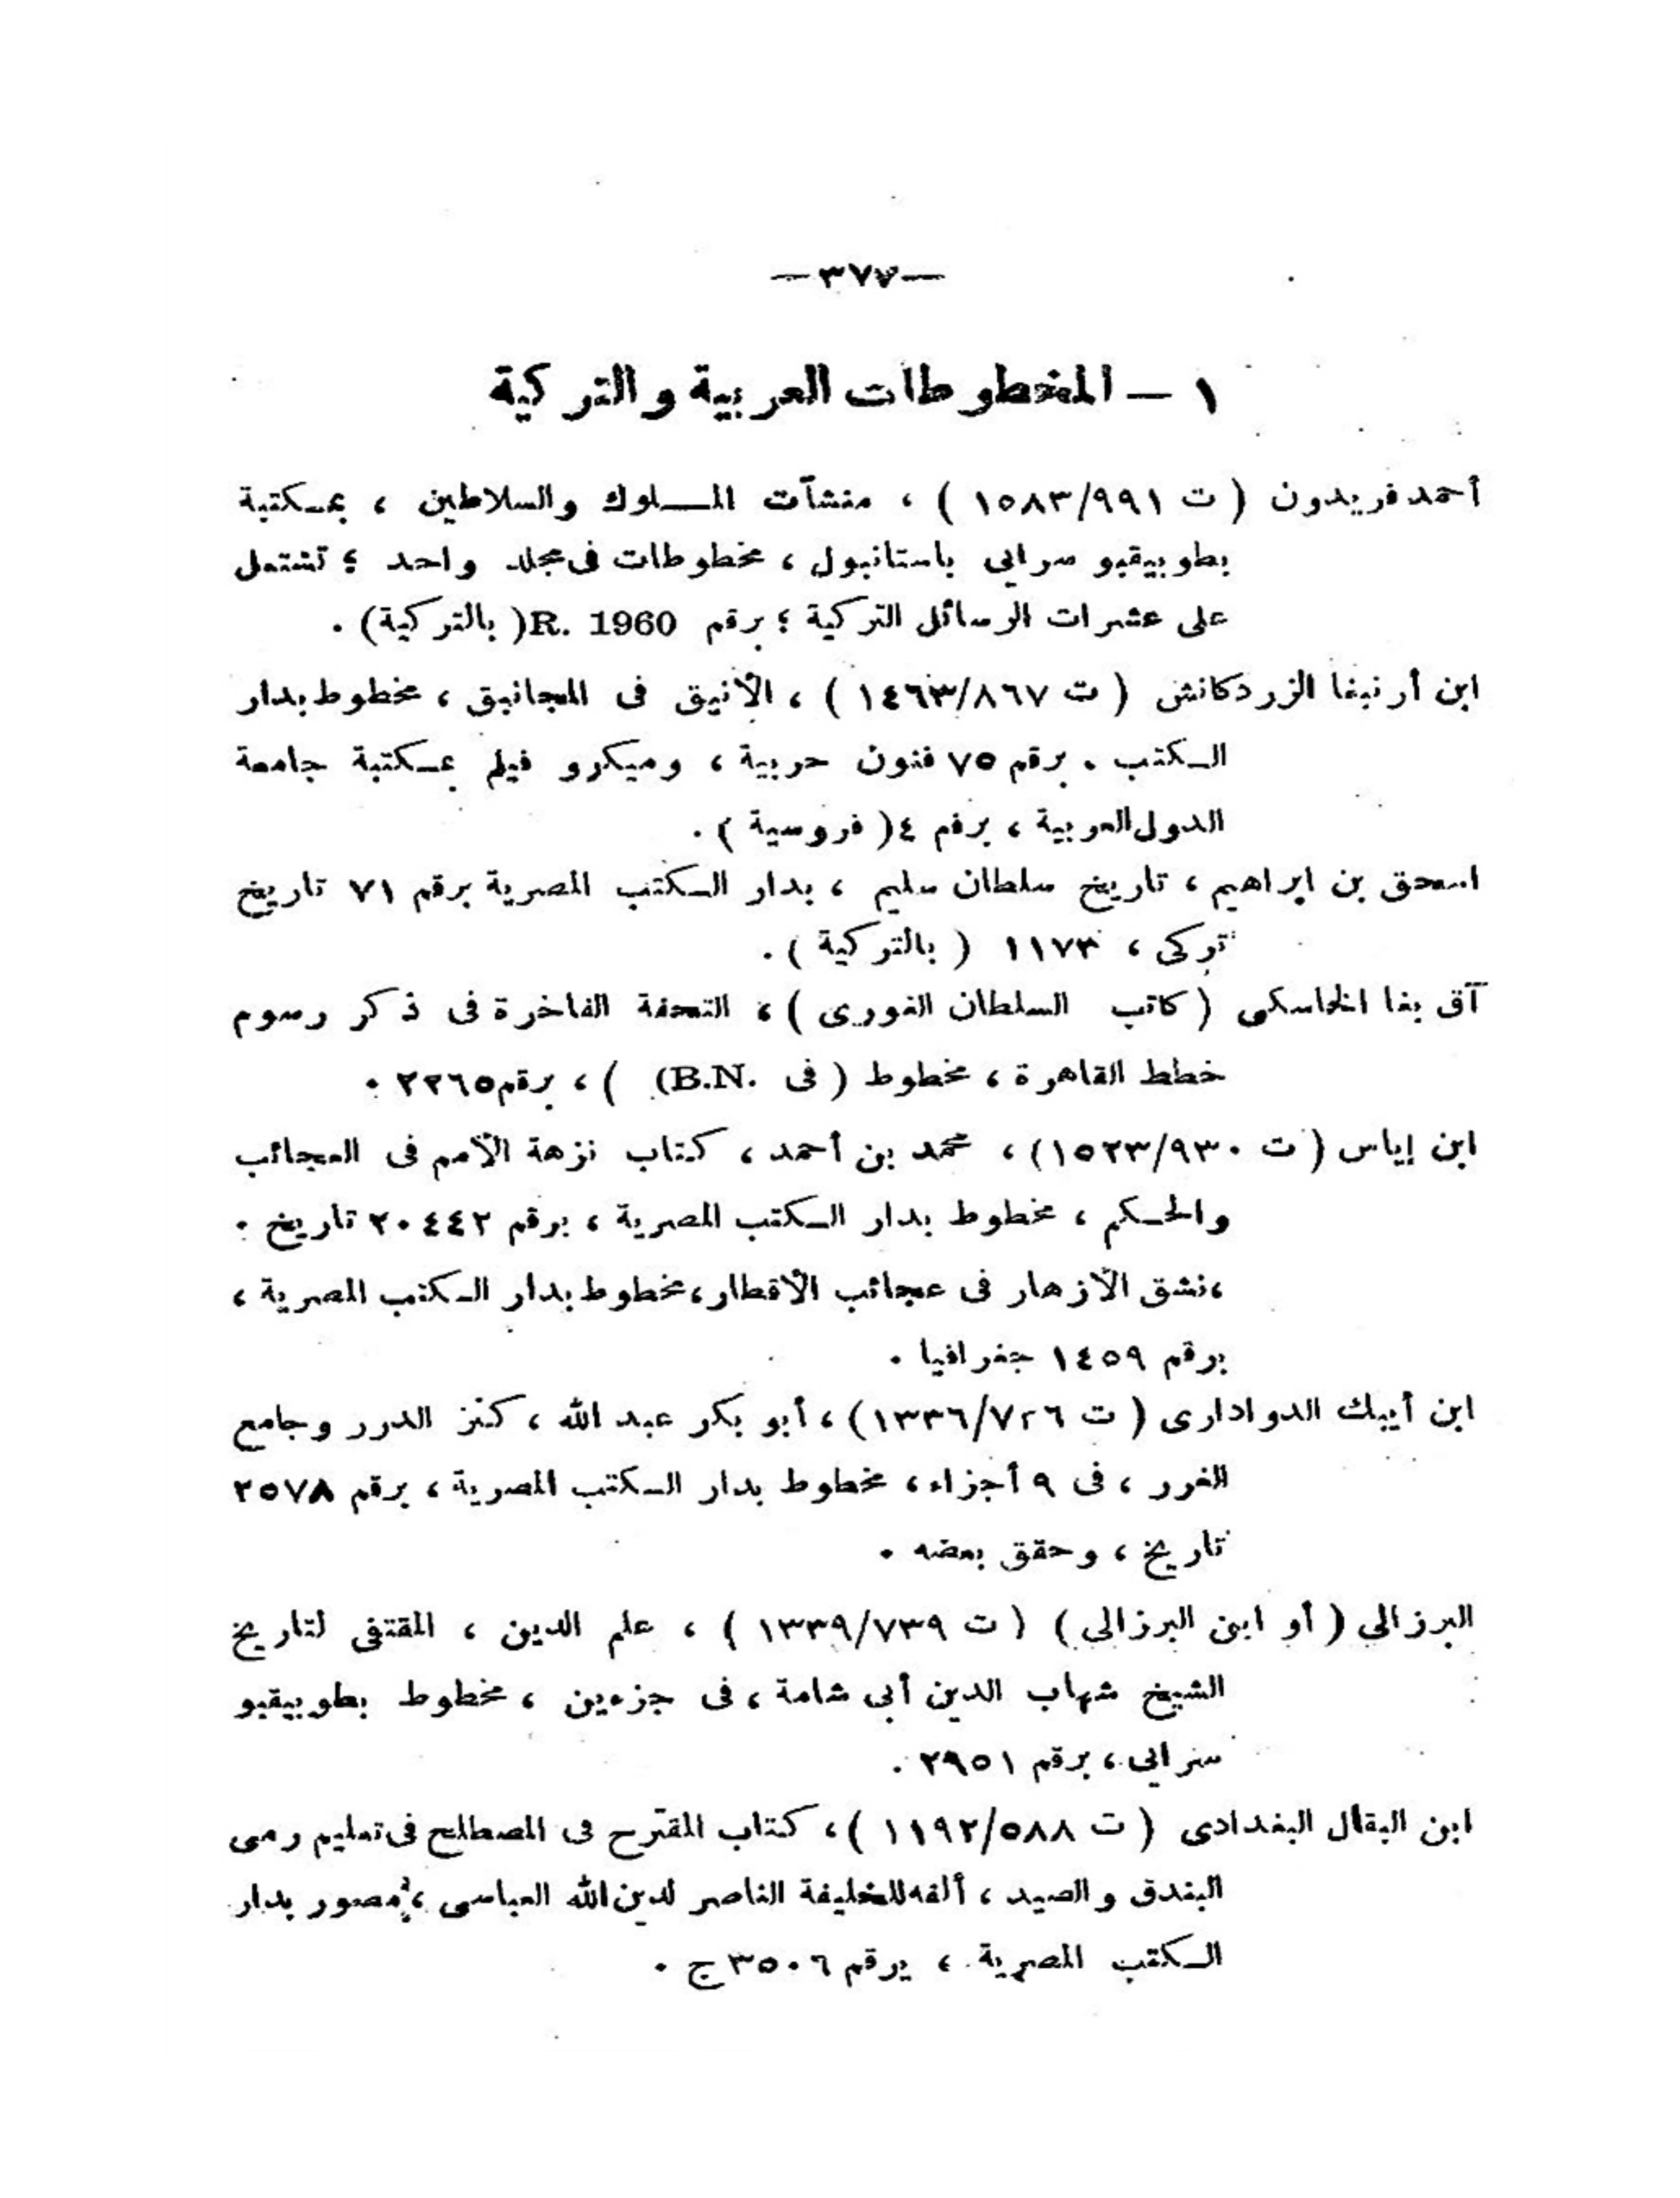 —٣٧٧—
١ — المخطوطات العربية والتركية
أحمد فريدون ( ت ١٥٨٣/٩٩١ ) ، منشآت الملوك والسلاطين ، بمكتبة
بطوبيقبو سرايى باستانبول ، مخطوطات فى مجلد واحد ؛ تشتمل
على عشرات الرسائل التركية ؛ برقم R. 1960 ( بالتركية ) .
ابن أرنبغا الزردكانش ( ت ١٤٦٣/٨٦٧ ) ، الأنيق فى المجانيق ، مخطوط بدار
الكتب . برقم ٧٥ فنون حربية ، وميكرو فيلم بمكتبة جامعة
الدول العربية ، برقم ٤ ( فروسية ) .
اسحق بن ابراهيم ، تاريخ سلطان سليم ، بدار الكتب المصرية برقم ٧١ تاريخ
تركى ، ١١٧٣ ( بالتركية ) .
آق بغا الخاسكى ( كاتب السلطان الغورى ) ، التحفة الفاخرة فى ذكر رسوم
خطط القاهرة ، مخطوط ( فى B.N. ) ، برقم ٢٢٦٥ .
ابن إياس ( ت ١٥٢٣/٩٣٠ ) ، محمد بن أحمد ، كتاب نزهة الأمم فى العجائب
والحكم ، مخطوط بدار الكتب المصرية ، برقم ٢٠٤٤٢ تاريخ .
، نشق الأزهار فى عجائب الأقطار ، مخطوط بدار الكتب المصرية ،
برقم ١٤٥٩ جغرافيا .
ابن أيبك الدوادارى ( ت ١٣٣٦/٧٢٦ ) ، أبو بكر عبد الله ، كنز الدرر وجامع
الغرر ، فى ٩ أجزاء ، مخطوط بدار الكتب المصرية ، برقم ٢٥٧٨
تاريخ ، وحقق بعضه .
البرزالى ( أو ابن البرزالى ) ( ت ١٣٣٩/٧٣٩ ) ، علم الدين ، المقتفى لتاريخ
الشيخ شهاب الدين أبى شامة ، فى جزءين ، مخطوط بطوبيقبو
سرايى ، برقم ٢٩٥١ .
ابن البقال البغدادى ( ت ١١٩٢/٥٨٨ ) ، كتاب المقترح فى المصطلح فى تعليم رمى
البندق والصيد ، ألفه للخليفة الناصر لدين الله العباسى ، مصور بدار
الكتب المصرية ، برقم ٣٥٠٦ ج .